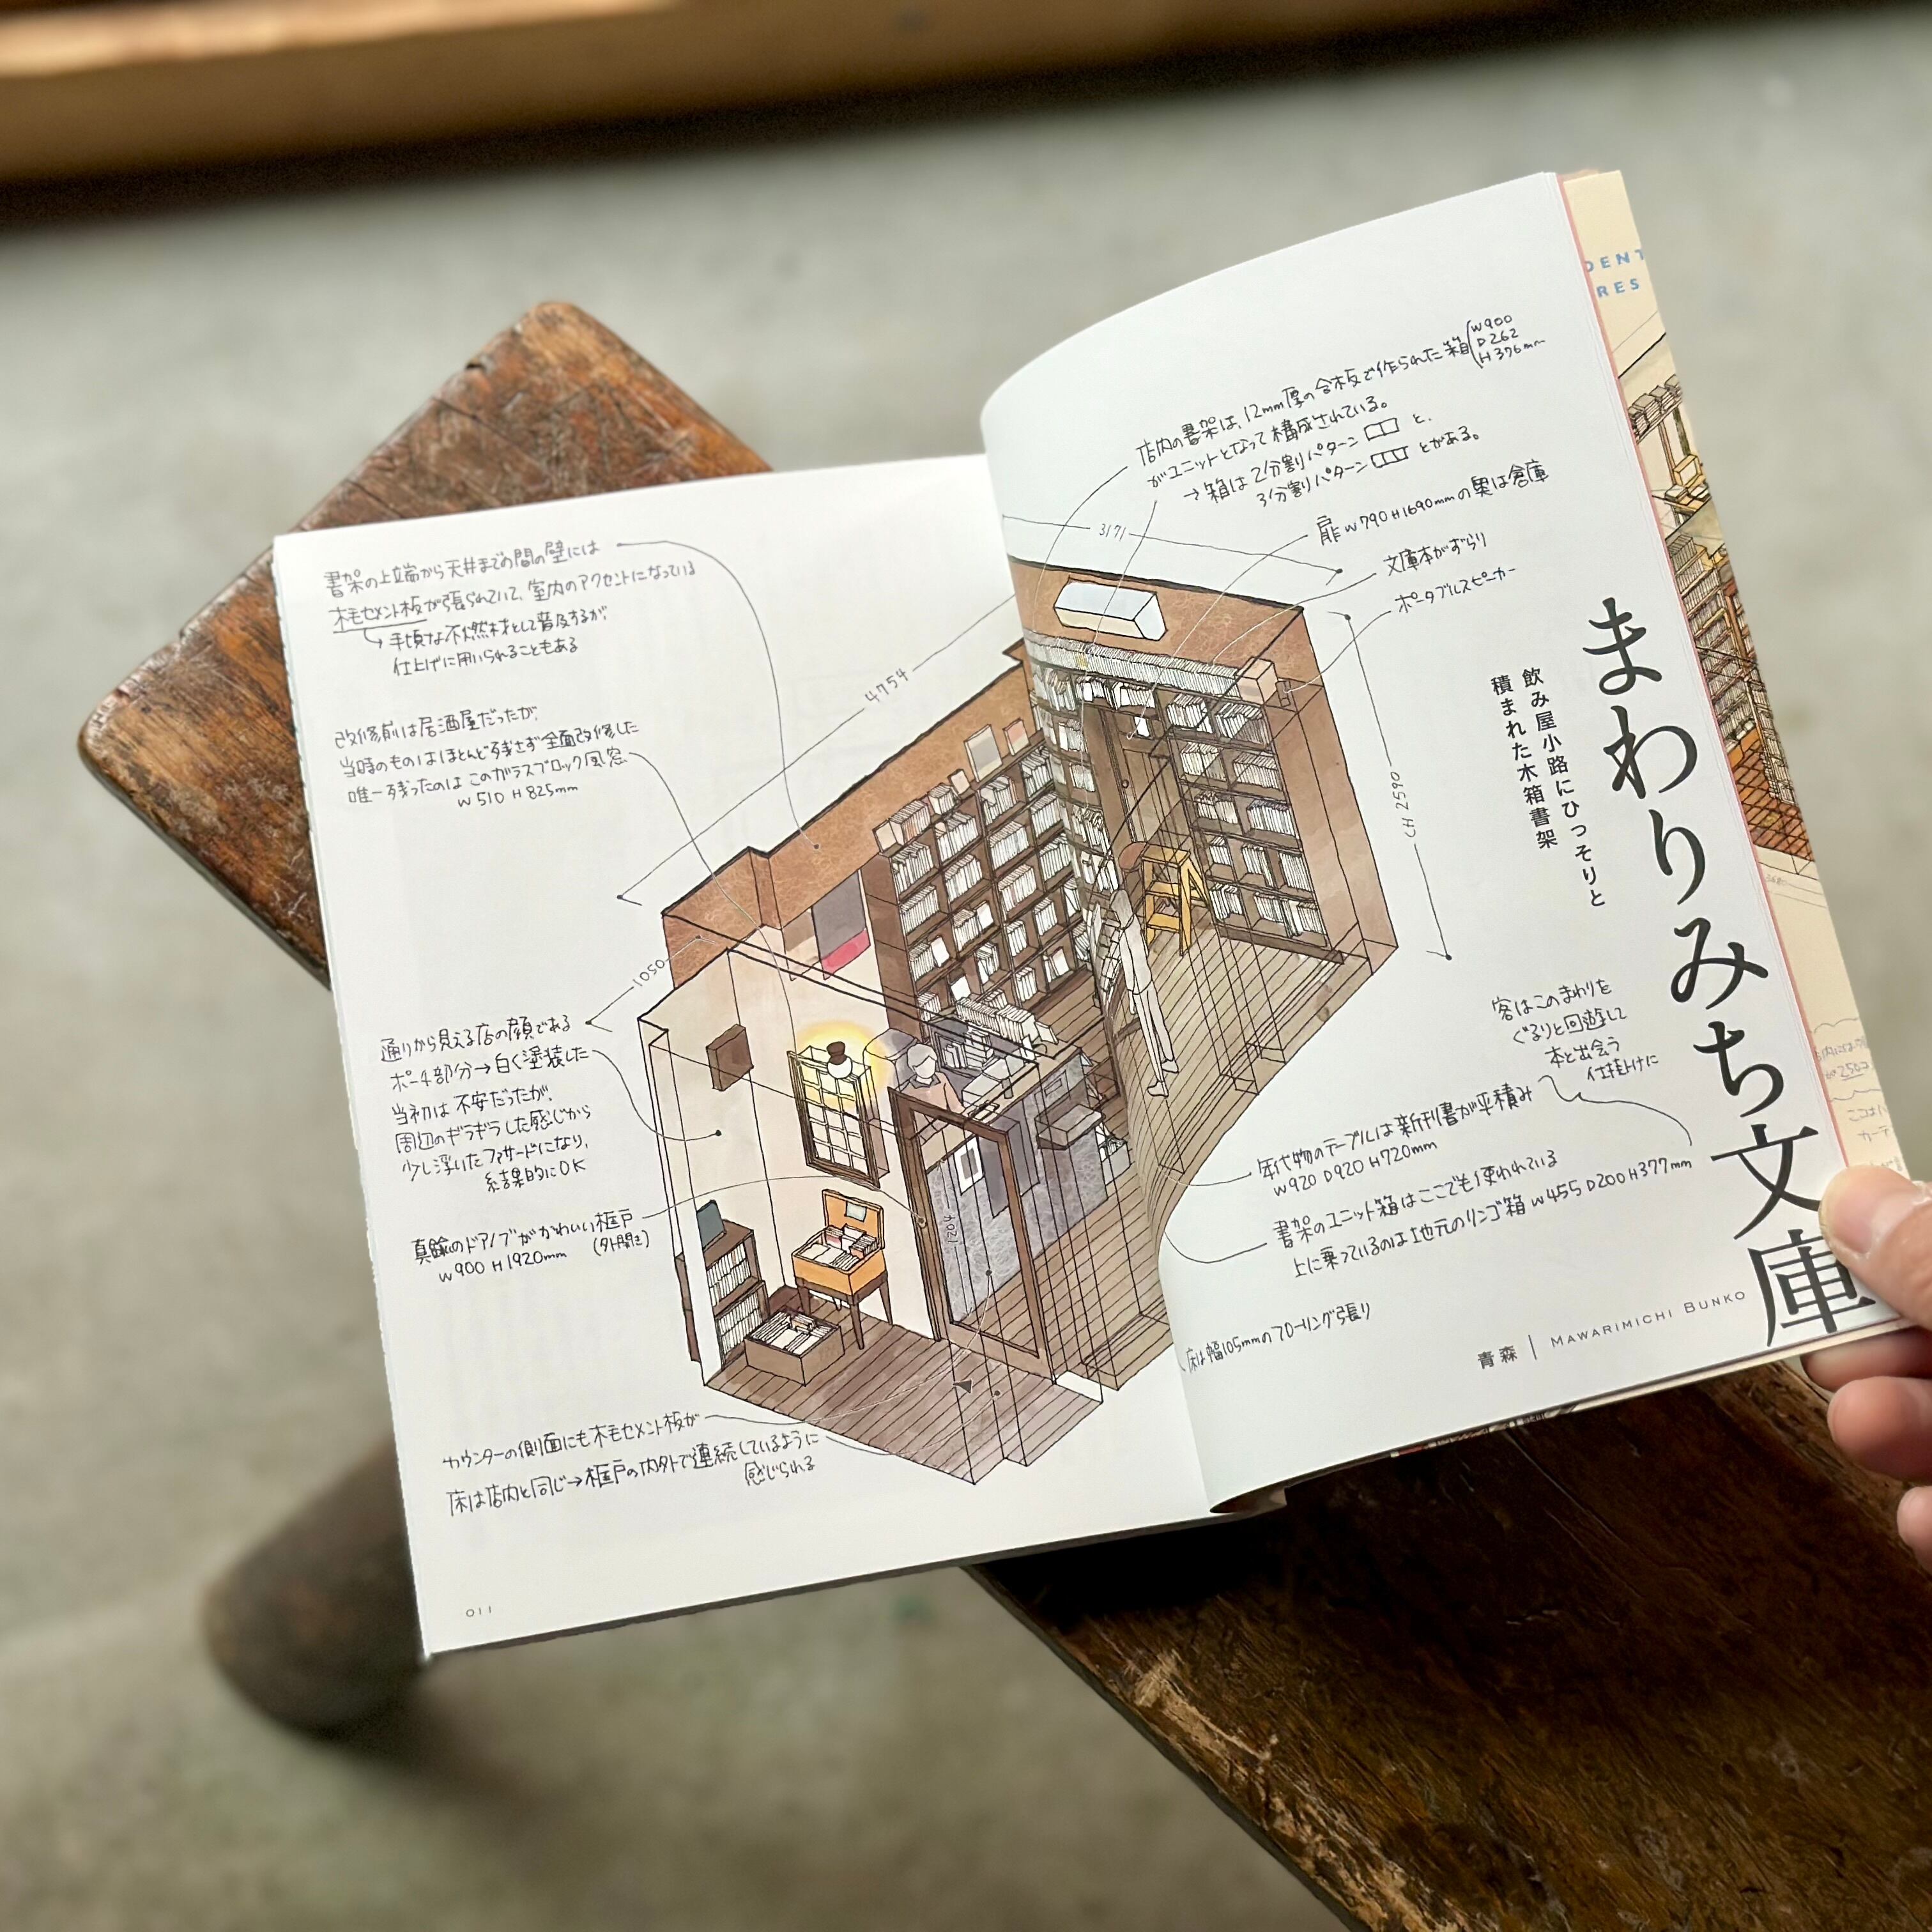 まわりみち文庫
飲み屋小路にひっそりと
積まれた木箱書架
青森 | MAWARIMICHI BUNKO
店内の書架は、12mm厚の合板で作られた箱
W900
D262
H376mm
がユニットとなって構成されている。
→箱は2分割パターン と、
3分割パターン とがある。
扉W790 H1690mmの奥は倉庫
文庫本がずらり
ポータブルスピーカー
3171
CH 2590
客はこのまわりを
ぐるりと回遊して
本と出会う
仕掛けに
年代物のテーブルは新刊書が平積み
W920 D920 H720mm
書架のユニット箱はここでも使われている
上に乗っているのは地元のリンゴ箱 W455 D200 H377mm
床は幅105mmのフローリング張り
書架の上端から天井までの間の壁には
木毛セメント板が張られていて、室内のアクセントになっている
→手頃な不燃材として普及するが、
仕上げに用いられることもある
4754
改修前は居酒屋だったが、
当時のものはほとんど残さず全面改修した
唯一残ったのはこのガラスブロック風窓
W510 H825mm
1050
通りから見える店の顔である
ポーチ部分→白く塗装した
当初は不安だったが、
周辺のギラギラした感じから
少し浮いたファサードになり、
結果的にOK
真鍮のドアノブがかわいい框戸
W900 H1920mm (外開き)
1204
カウンターの側面にも木毛セメント板が
床は店内と同じ→框戸の内外で連続しているように
感じられる
011
DENT
RES